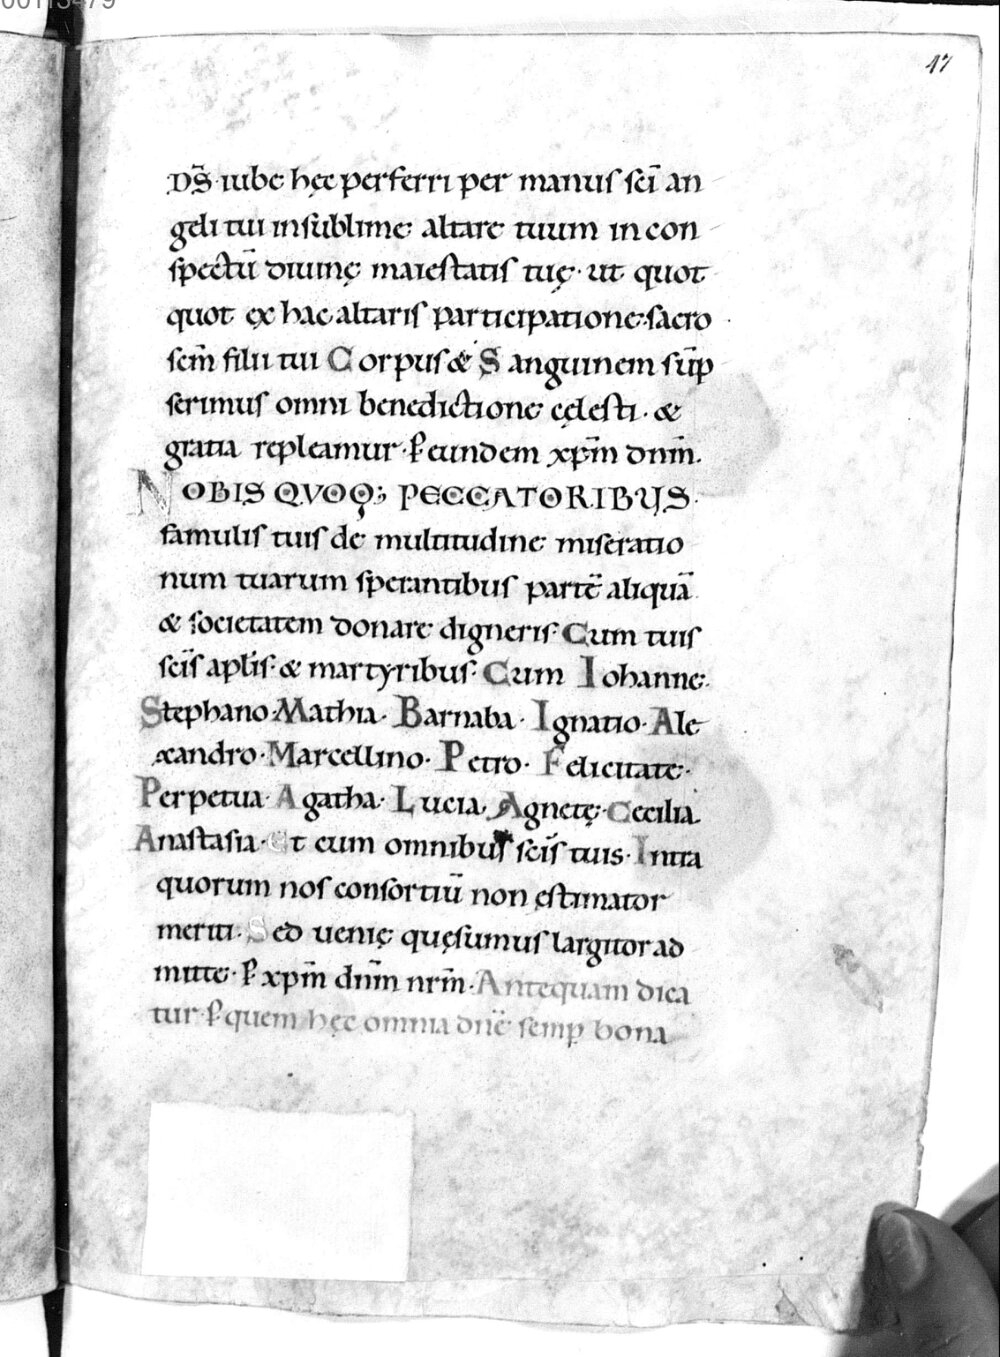 00113479
47
DS̄ · iube hęc perferri per manus sc̄i an
geli tui in sublime altare tuum in con
spectū diuinę maiestatis tuę · ut quot
quot ex hac altaris participatione · sacro
scm̄ filii tui Corpus & Sanguinem sūp
serimus omni benedictione cęlesti · &
gratia repleamur · ꝑ eundem xp̄m dnm̄.
NOBIS QVOQ; PECCATORIBUS ·
famulis tuis de multitudine miseratio
num tuarum sperantibus partē aliquā
& societatem donare digneris · Cum tuis
sc̄is aplīs · & martyribus · Cum Iohanne ·
Stephano · Mathia · Barnaba · Ignatio · Ale
xandro · Marcellino · Petro · Felicitate ·
Perpetua · Agatha · Lucia · Agnetę · Cecilia
Anastasia · Et cum omnibus sc̄is tuis · Intra
quorum nos consortiū non ęstimator
meriti · Sed uenię quęsumus largitor ad
mitte · ꝑ xp̄m dnm̄ nrm̄ · Antequam dica
tur ꝑ quem hęc omnia dnē semꝑ bona